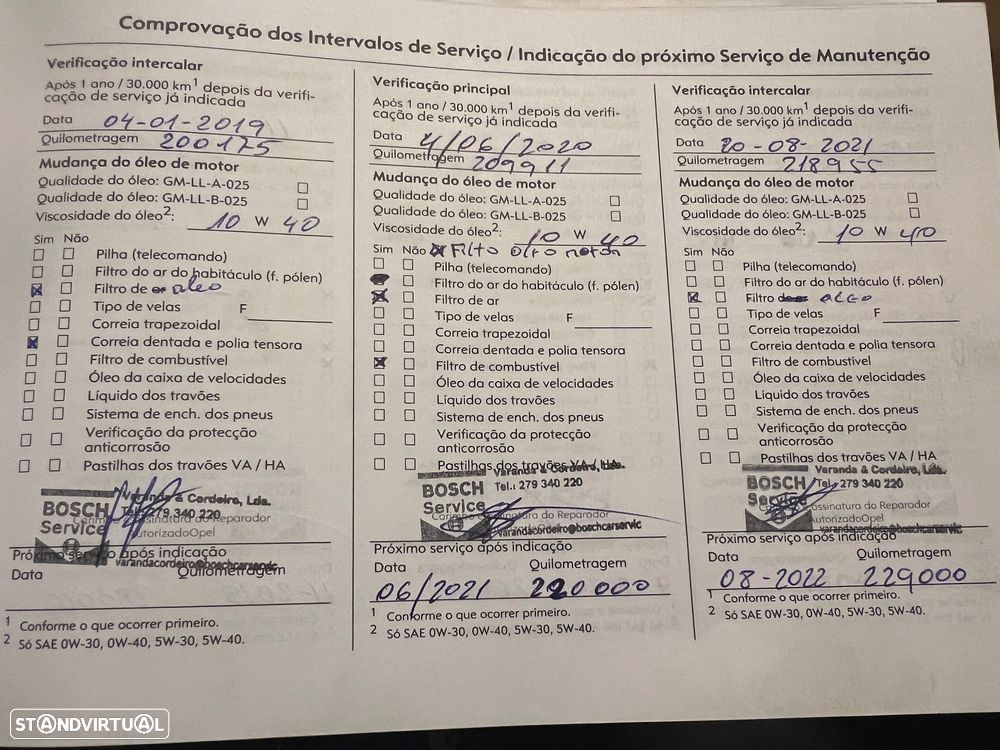 Comprovação dos Intervalos de Serviço / Indicação do próximo Serviço de Manutenção
Verificação intercalar
Após 1 ano / 30.000 km1 depois da verifi-
cação de serviço já indicada
Data 04-01-2019
Quilometragem 200175
Mudança do óleo de motor
Qualidade do óleo: GM-LL-A-025
Qualidade do óleo: GM-LL-B-025
Viscosidade do óleo2: 10 W 40
Sim Não
Pilha (telecomando)
Filtro do ar do habitáculo (f. pólen)
Filtro de ar oleo
Tipo de velas F
Correia trapezoidal
Correia dentada e polia tensora
Filtro de combustível
Óleo da caixa de velocidades
Líquido dos travões
Sistema de ench. dos pneus
Verificação da protecção
anticorrosão
Pastilhas dos travões VA / HA
Varanda & Cordeiro, Lda.
BOSCH Tel.: 279 340 220
Service assinatura do Reparador
utorizadoOpel
varandacordeiro@boschcarservic
Próximo serviço após indicação
Data Quilometragem
1 Conforme o que ocorrer primeiro.
2 Só SAE 0W-30, 0W-40, 5W-30, 5W-40.
Verificação principal
Após 1 ano / 30.000 km1 depois da verifi-
cação de serviço já indicada
Data 4/06/2020
Quilometragem 209911
Mudança do óleo de motor
Qualidade do óleo: GM-LL-A-025
Qualidade do óleo: GM-LL-B-025
Viscosidade do óleo2: 10 W 40
Sim Não Filto olro motor
Pilha (telecomando)
Filtro do ar do habitáculo (f. pólen)
Filtro de ar
Tipo de velas F
Correia trapezoidal
Correia dentada e polia tensora
Filtro de combustível
Óleo da caixa de velocidades
Líquido dos travões
Sistema de ench. dos pneus
Verificação da protecção
anticorrosão
Pastilhas dos travões VA / HA
Varanda & Cordeiro, Lda.
BOSCH Tel.: 279 340 220
Service natura do Reparador
utorizadoOpel
varandacordeiro@boschcarservic
Próximo serviço após indicação
Data Quilometragem
06/2021 220000
1 Conforme o que ocorrer primeiro.
2 Só SAE 0W-30, 0W-40, 5W-30, 5W-40.
Verificação intercalar
Após 1 ano / 30.000 km1 depois da verifi-
cação de serviço já indicada
Data 20-08-2021
Quilometragem 218955
Mudança do óleo de motor
Qualidade do óleo: GM-LL-A-025
Qualidade do óleo: GM-LL-B-025
Viscosidade do óleo2: 10 W 40
Sim Não
Pilha (telecomando)
Filtro do ar do habitáculo (f. pólen)
Filtro oleo
Tipo de velas F
Correia trapezoidal
Correia dentada e polia tensora
Filtro de combustível
Óleo da caixa de velocidades
Líquido dos travões
Sistema de ench. dos pneus
Verificação da protecção
anticorrosão
Pastilhas dos travões VA / HA
Varanda & Cordeiro, Lda.
BOSCH Tel.: 279 340 220
Service assinatura do Reparador
utorizadoOpel
varandacordeiro@boschcarservic
Próximo serviço após indicação
Data Quilometragem
08-2022 229000
1 Conforme o que ocorrer primeiro.
2 Só SAE 0W-30, 0W-40, 5W-30, 5W-40.
STANDVIRTUAL